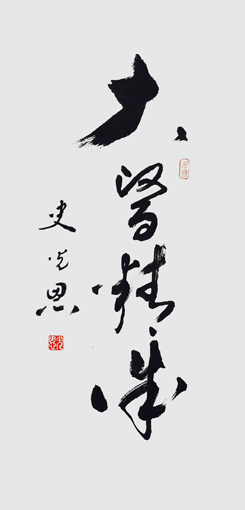 大醫精誠
史光恩